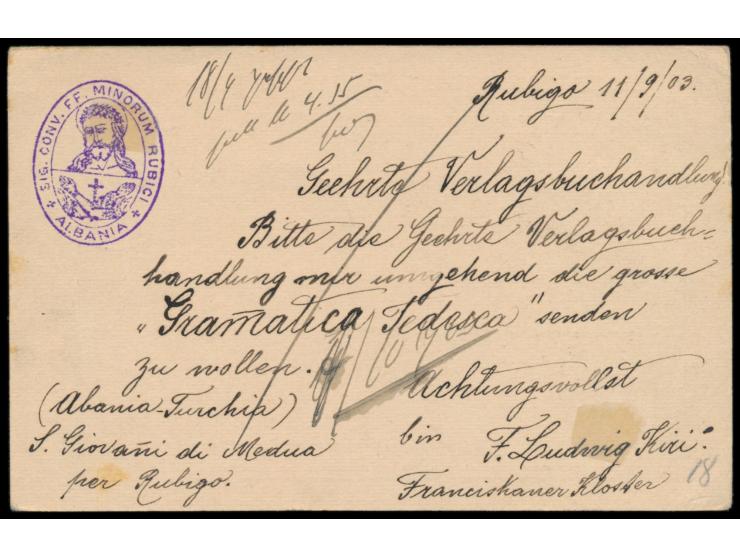 SIG. CONV. FF. MINORUM RUBICI
ALBANIA
18/9
4.35
Rubigo 11/9/03.
Geehrte Verlagsbuchandlung!
Bitte die Geehrte Verlagsbuch=
handlung mir umgehend die grosse
„Gram̅atica Tedesca" senden
zu wollen.
Achtungsvollst
(Abania-Turchia)
S. Giovan̅i di Medua
per Rubigo.
bin F. Ludwig Kiri:
Franciskaner Kloster
18